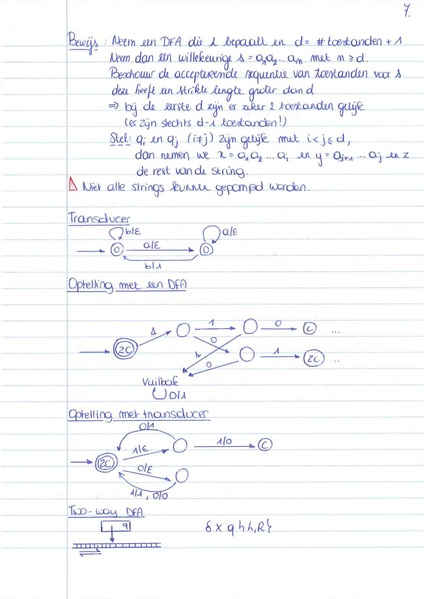 7.
Bewijs : Neem een DFA die L bepaalt en d = # toestanden + 1
Neem dan een willekeurige s = a₁a₂...aₙ met n ≥ d.
Beschouw de accepterende sequentie van toestanden voor s
deze heeft een strikte lengte groter dan d
⇒ bij de eerste d zijn er zeker 2 toestanden gelijk
(er zijn slechts d-1 toestanden!)
Stel: qᵢ en qⱼ (i≠j) zijn gelijk met i < j ≤ d,
dan nemen we x = a₁a₂...aᵢ en y = aᵢ₊₁...aⱼ en z
de rest van de string.
Niet alle strings kunnen gepompd worden.
Transducer
b/ε a/ε
a/ε
b/1
Optelling met een DFA
1 1 0 C ...
ZC 1 0
0 1 ZC ...
Vuilbak
0/1
Optelling met transducer
0/1
1/ε 1/0 C
ZC
0/ε
1/1, 0/0
Two-way DFA
q